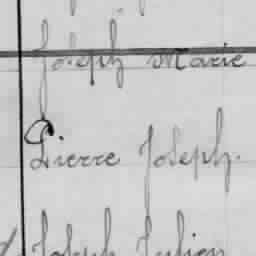 Joseph Marie
Pierre Joseph.
Joseph Julien